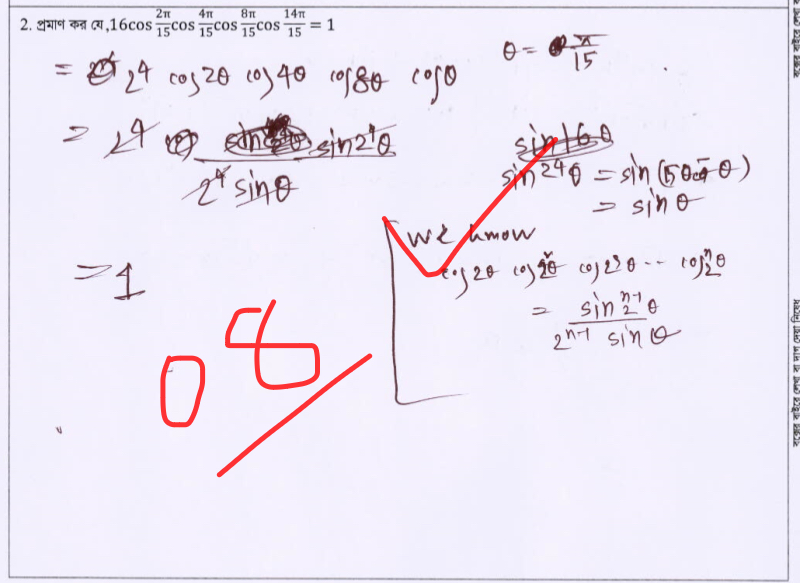 2. প্রমাণ কর যে,16cos 2π/15 cos 4π/15 cos 8π/15 cos 14π/15 = 1
θ = π/15
= 2^4 cos2θ cos4θ cos8θ cosθ
= 2^4 sin2^4θ / 2^4 sinθ
sin16θ
sin 2^4θ = sin( θ)
= sin θ
we know
cos2θ cos2^2θ cos2^3θ -- cos2^nθ
= sin2^(n-1)θ / 2^(n-1) sinθ
= 1
08